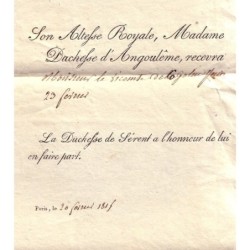 Son Altesse Royale, Madame
Duchesse d'Angoulême, recevra
Monsieur le Vicomte de
23 février
La Duchesse de Sérent a l'honneur de lui
en faire part.
Paris, le 20 février 1815